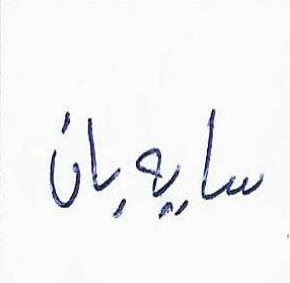 سایه بان